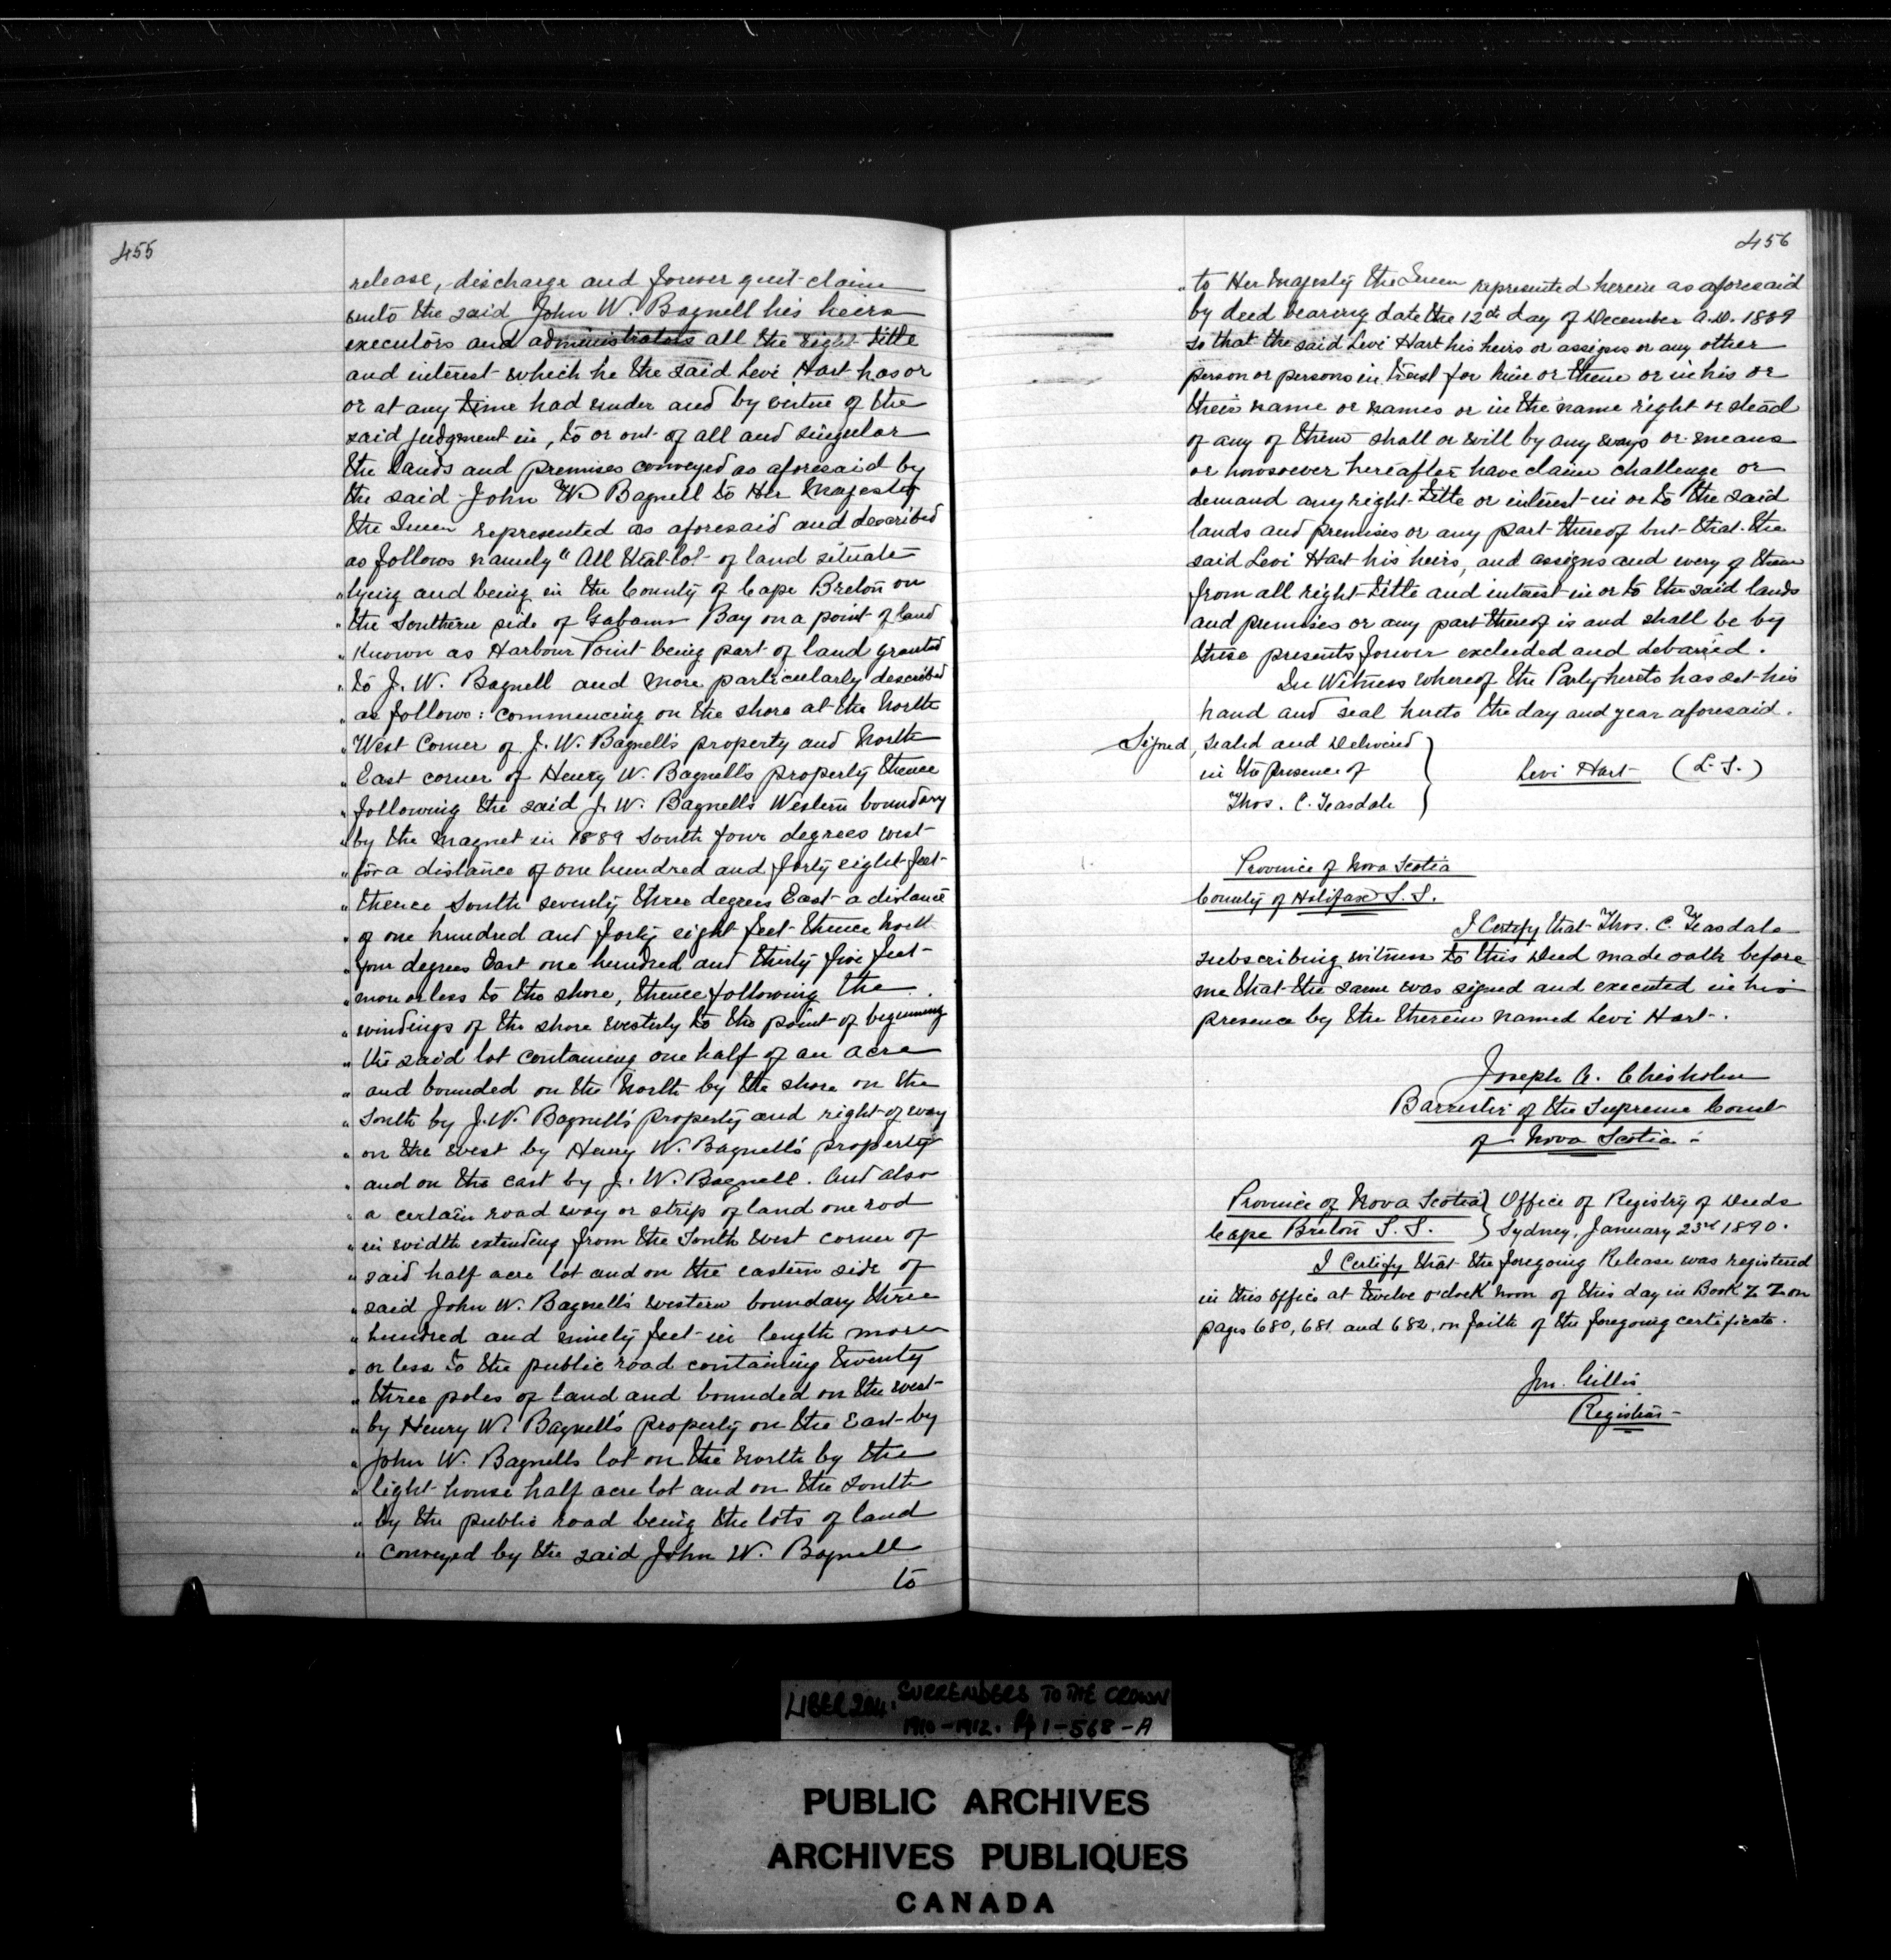 455
release, discharge and forever quit-claim
unto the said John W. Bagnell his heirs
executors and administrators all the right title
and interest which he the said Levi Hart has or
or at any time had under and by virtue of the
said judgment in, to or out of all and singular
the lands and premises conveyed as aforesaid by
the said John W. Bagnell to Her Majesty
the Queen represented as aforesaid and described
as follows namely "All that lot of land situate
" lying and being in the County of Cape Breton on
" the Southern side of Gabarus Bay on a point of land
" known as Harbour Point being part of land granted
" to J. W. Bagnell and more particularly described
" as follows: commencing on the shore at the North
" West Corner of J. W. Bagnell's property and North
" East corner of Henry W. Bagnell's property thence
" following the said J. W. Bagnell's Western boundary
" by the magnet in 1889 South four degrees west
" for a distance of one hundred and forty eight feet
" thence South seventy three degrees East a distance
" of one hundred and forty eight feet thence North
" four degrees East one hundred and thirty five feet
" more or less to the shore, thence following the
" windings of the shore westerly to the point of beginning
" the said lot containing one half of an acre
" and bounded on the North by the shore on the
" South by J. W. Bagnell's property and right of way
" on the west by Henry W. Bagnell's property
" and on the east by J. W. Bagnell. And also
" a certain road way or strip of land one rod
" in width extending from the South west corner of
" said half acre lot and on the eastern side of
" said John W. Bagnell's western boundary three
" hundred and ninety feet in length more
" or less to the public road containing twenty
" three poles of land and bounded on the west
" by Henry W. Bagnell's property on the East by
" John W. Bagnells lot on the North by the
" light-house half acre lot and on the South
" by the public road being the lots of land
" conveyed by the said John W. Bagnell
to
456
" to Her Majesty the Queen represented herein as aforesaid
by deed bearing date the 12th day of December A.D. 1889
so that the said Levi Hart his heirs or assigns or any other
person or persons in trust for him or them or in his or
their name or names or in the name right or stead
of any of them shall or will by any ways or means
or howsoever hereafter have claim challenge or
demand any right title or interest in or to the said
lands and premises or any part thereof but that the
said Levi Hart his heirs, and assigns and every of them
from all right title and interest in or to the said lands
and premises or any part thereof is and shall be by
these presents forever excluded and debarred.
In Witness whereof the Party hereto has set his
hand and seal hereto the day and year aforesaid.
Signed, sealed and delivered
in the presence of Levi Hart (L. S.)
Thos. C. Teasdale
Province of Nova Scotia
County of Halifax S. S.
I Certify that Thos. C. Teasdale
subscribing witness to this Deed made oath before
me that the same was signed and executed in his
presence by the therein named Levi Hart.
Joseph A. Chisholm
Barrister of the Supreme Court
of Nova Scotia
Province of Nova Scotia } Office of Registry of Deeds
Cape Breton S. S. } Sydney, January 23rd 1890.
I Certify that the foregoing Release was registered
in this office at twelve o'clock noon of this day in Book Z Z on
pages 680, 681 and 682, on faith of the foregoing certificate.
Jon. Gillis
Registrar
LIBER 204. SURRENDERS TO THE CROWN
1910-1912. Pp 1-568-A
PUBLIC ARCHIVES
ARCHIVES PUBLIQUES
CANADA